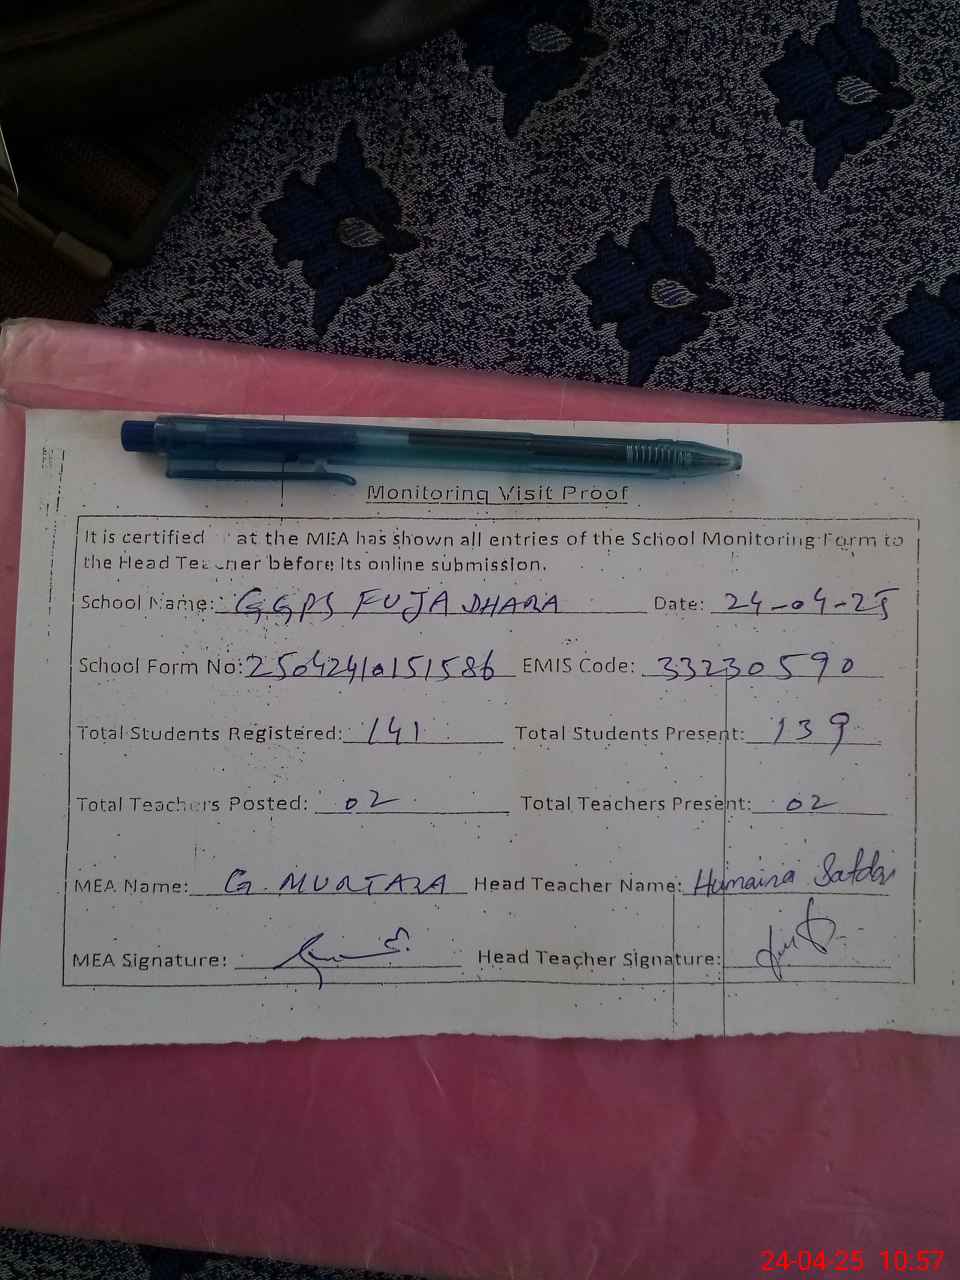 Monitoring Visit Proof
It is certified at the MEA has shown all entries of the School Monitoring Form to
the Head Teacher before its online submission.
School Name: GGPS FUJA DHARA Date: 24-04-25
School Form No: 25042410151586 EMIS Code: 33230590
Total Students Registered: 141 Total Students Present: 139
Total Teachers Posted: 02 Total Teachers Present: 02
MEA Name: G. MURTAZA Head Teacher Name: Humaira Safdar
MEA Signature: Head Teacher Signature:
24-04-25 10:57